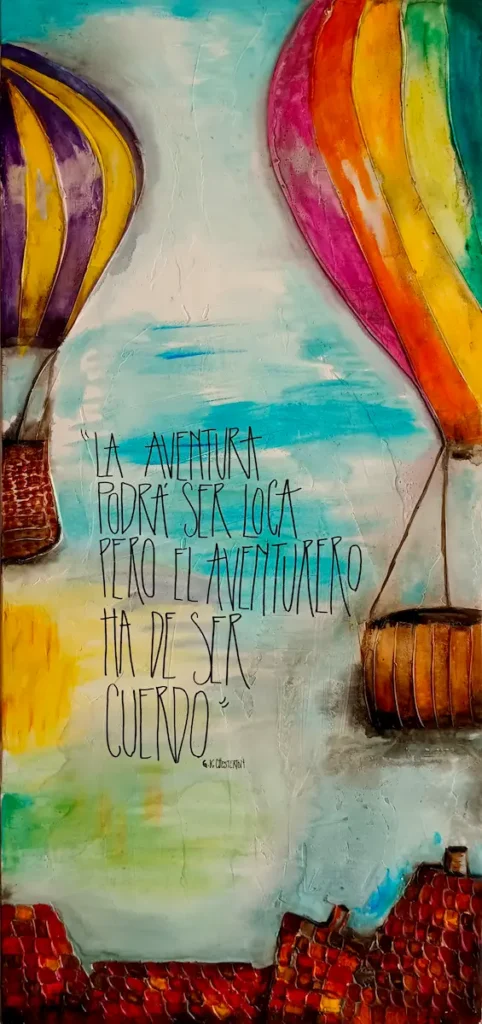 "LA AVENTURA
PODRÁ SER LOCA
PERO EL AVENTURERO
HA DE SER
CUERDO"
G.K CHESTERTON